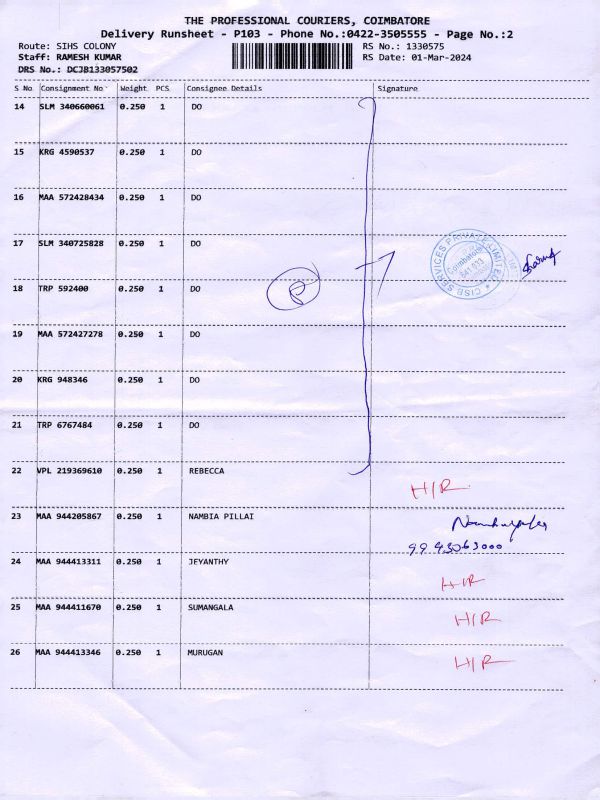 THE PROFESSIONAL COURIERS, COIMBATORE
Delivery Runsheet - P103 - Phone No.:0422-3505555 - Page No.:2
Route: SIHS COLONY RS No.: 1330575
Staff: RAMESH KUMAR RS Date: 01-Mar-2024
DRS No.: DCJB133057502
S No Consignment No Weight PCS Consignee Details Signature
14 SLM 340660061 0.250 1 DO
15 KRG 4590537 0.250 1 DO
16 MAA 572428434 0.250 1 DO
17 SLM 340725828 0.250 1 DO
CISB SERVICES PRIVATE LIMITED
Coimbatore
641 033
18 TRP 592400 0.250 1 DO
19 MAA 572427278 0.250 1 DO
20 KRG 948346 0.250 1 DO
21 TRP 6767484 0.250 1 DO
22 VPL 219369610 0.250 1 REBECCA H/R
23 MAA 944205867 0.250 1 NAMBIA PILLAI
9943063000
24 MAA 944413311 0.250 1 JEYANTHY H/R
25 MAA 944411670 0.250 1 SUMANGALA H/R
26 MAA 944413346 0.250 1 MURUGAN H/R